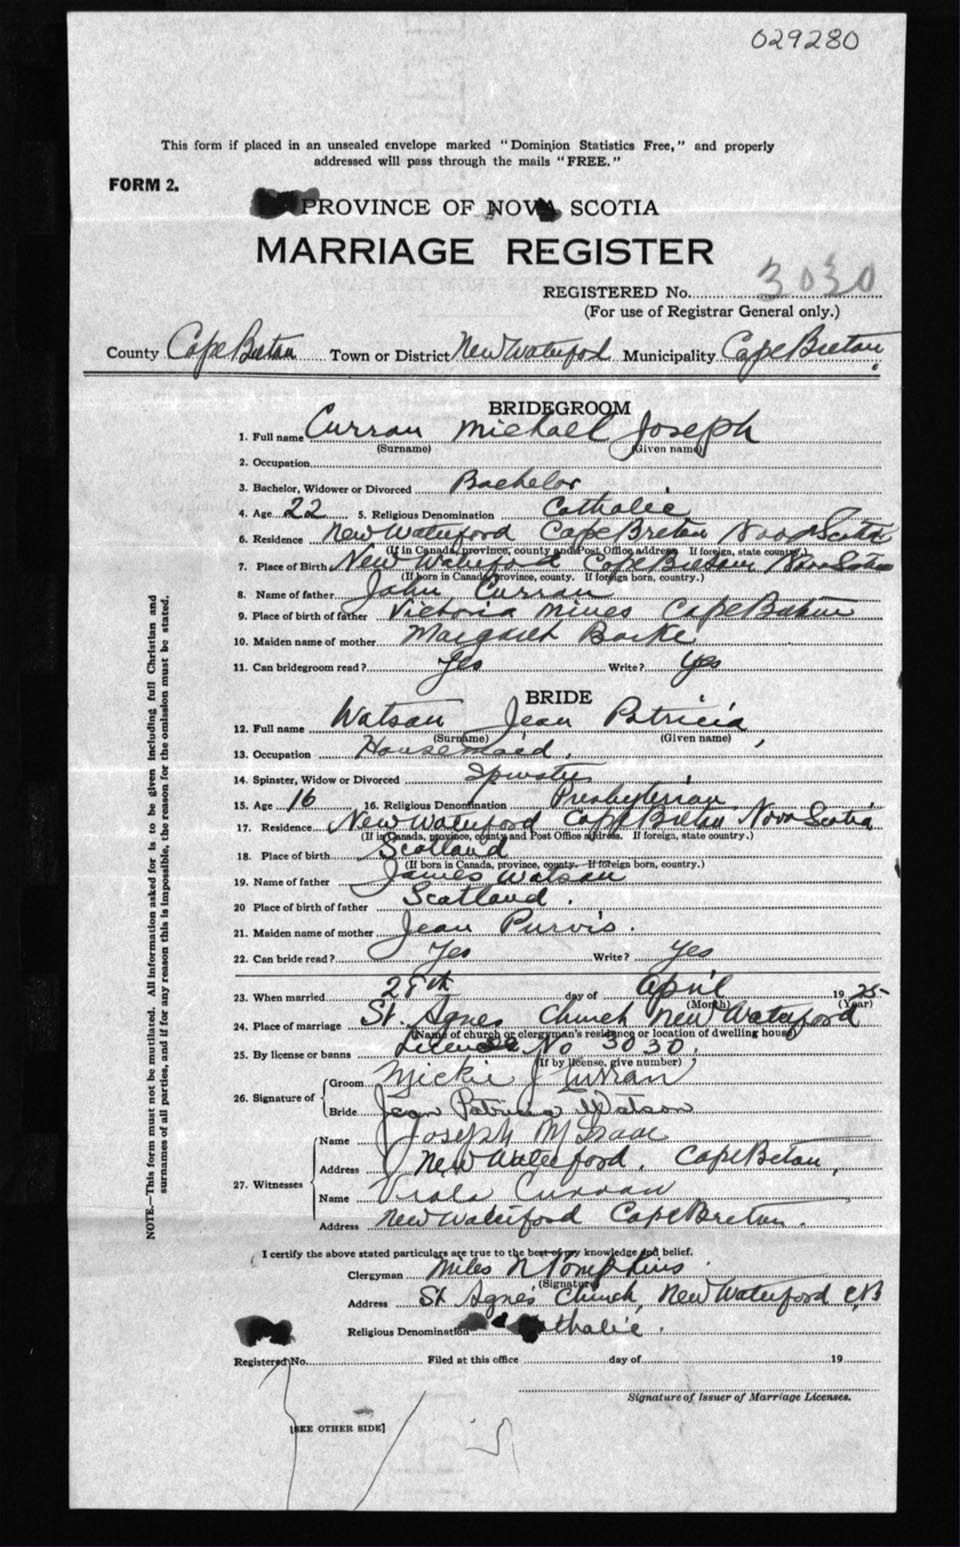 029280
This form if placed in an unsealed envelope marked "Dominion Statistics Free," and properly
addressed will pass through the mails "FREE."
FORM 2.
PROVINCE OF NOVA SCOTIA
MARRIAGE REGISTER
REGISTERED No. 3030
(For use of Registrar General only.)
County Cape Breton Town or District New Waterford Municipality Cape Breton
BRIDEGROOM
1. Full name Curran Michael Joseph
(Surname) (Given name)
2. Occupation
3. Bachelor, Widower or Divorced Bachelor
4. Age 22 5. Religious Denomination Catholic
6. Residence New Waterford Cape Breton Nova Scotia
(If in Canada, province, county and Post Office address. If foreign, state country.)
7. Place of Birth New Waterford Cape Breton Nova Scotia
(If born in Canada, province, county. If foreign born, country.)
8. Name of father John Curran
9. Place of birth of father Victoria Mines Cape Breton
10. Maiden name of mother Margaret
11. Can bridegroom read? Yes Write? Yes
BRIDE
12. Full name Watson Jean Patricia
(Surname) (Given name)
13. Occupation Housemaid.
14. Spinster, Widow or Divorced Spinster
15. Age 16 16. Religious Denomination Presbyterian
17. Residence New Waterford Cape Breton Nova Scotia
(If in Canada, province, county and Post Office address. If foreign, state country.)
18. Place of birth Scotland
(If born in Canada, province, county. If foreign born, country.)
19. Name of father James Watson
20 Place of birth of father Scotland.
21. Maiden name of mother Jean Purvis.
22. Can bride read? Yes Write? Yes
23. When married 28th day of April 1925
(Month) (Year)
24. Place of marriage St. Agnes Church New Waterford
(Name of church or clergyman's residence or location of dwelling house)
25. By license or banns License No 3030
(If by license, give number)
26. Signature of
Groom Mickie J Curran
Bride Jean Patricia Watson
27. Witnesses
Name Joseph McIsaac
Address New Waterford, Cape Breton,
Name Viola Curran
Address New Waterford Cape Breton.
I certify the above stated particulars are true to the best of my knowledge and belief.
Clergyman Miles N Tompkins.
(Signature)
Address St Agnes Church, New Waterford C,B
Religious Denomination Catholic.
Registered No. Filed at this office day of 19
Signature of Issuer of Marriage Licenses.
[SEE OTHER SIDE]
NOTE.—This form must not be mutilated. All information asked for is to be given including full Christian and
surnames of all parties, and if for any reason this is impossible, the reason for the omission must be stated.